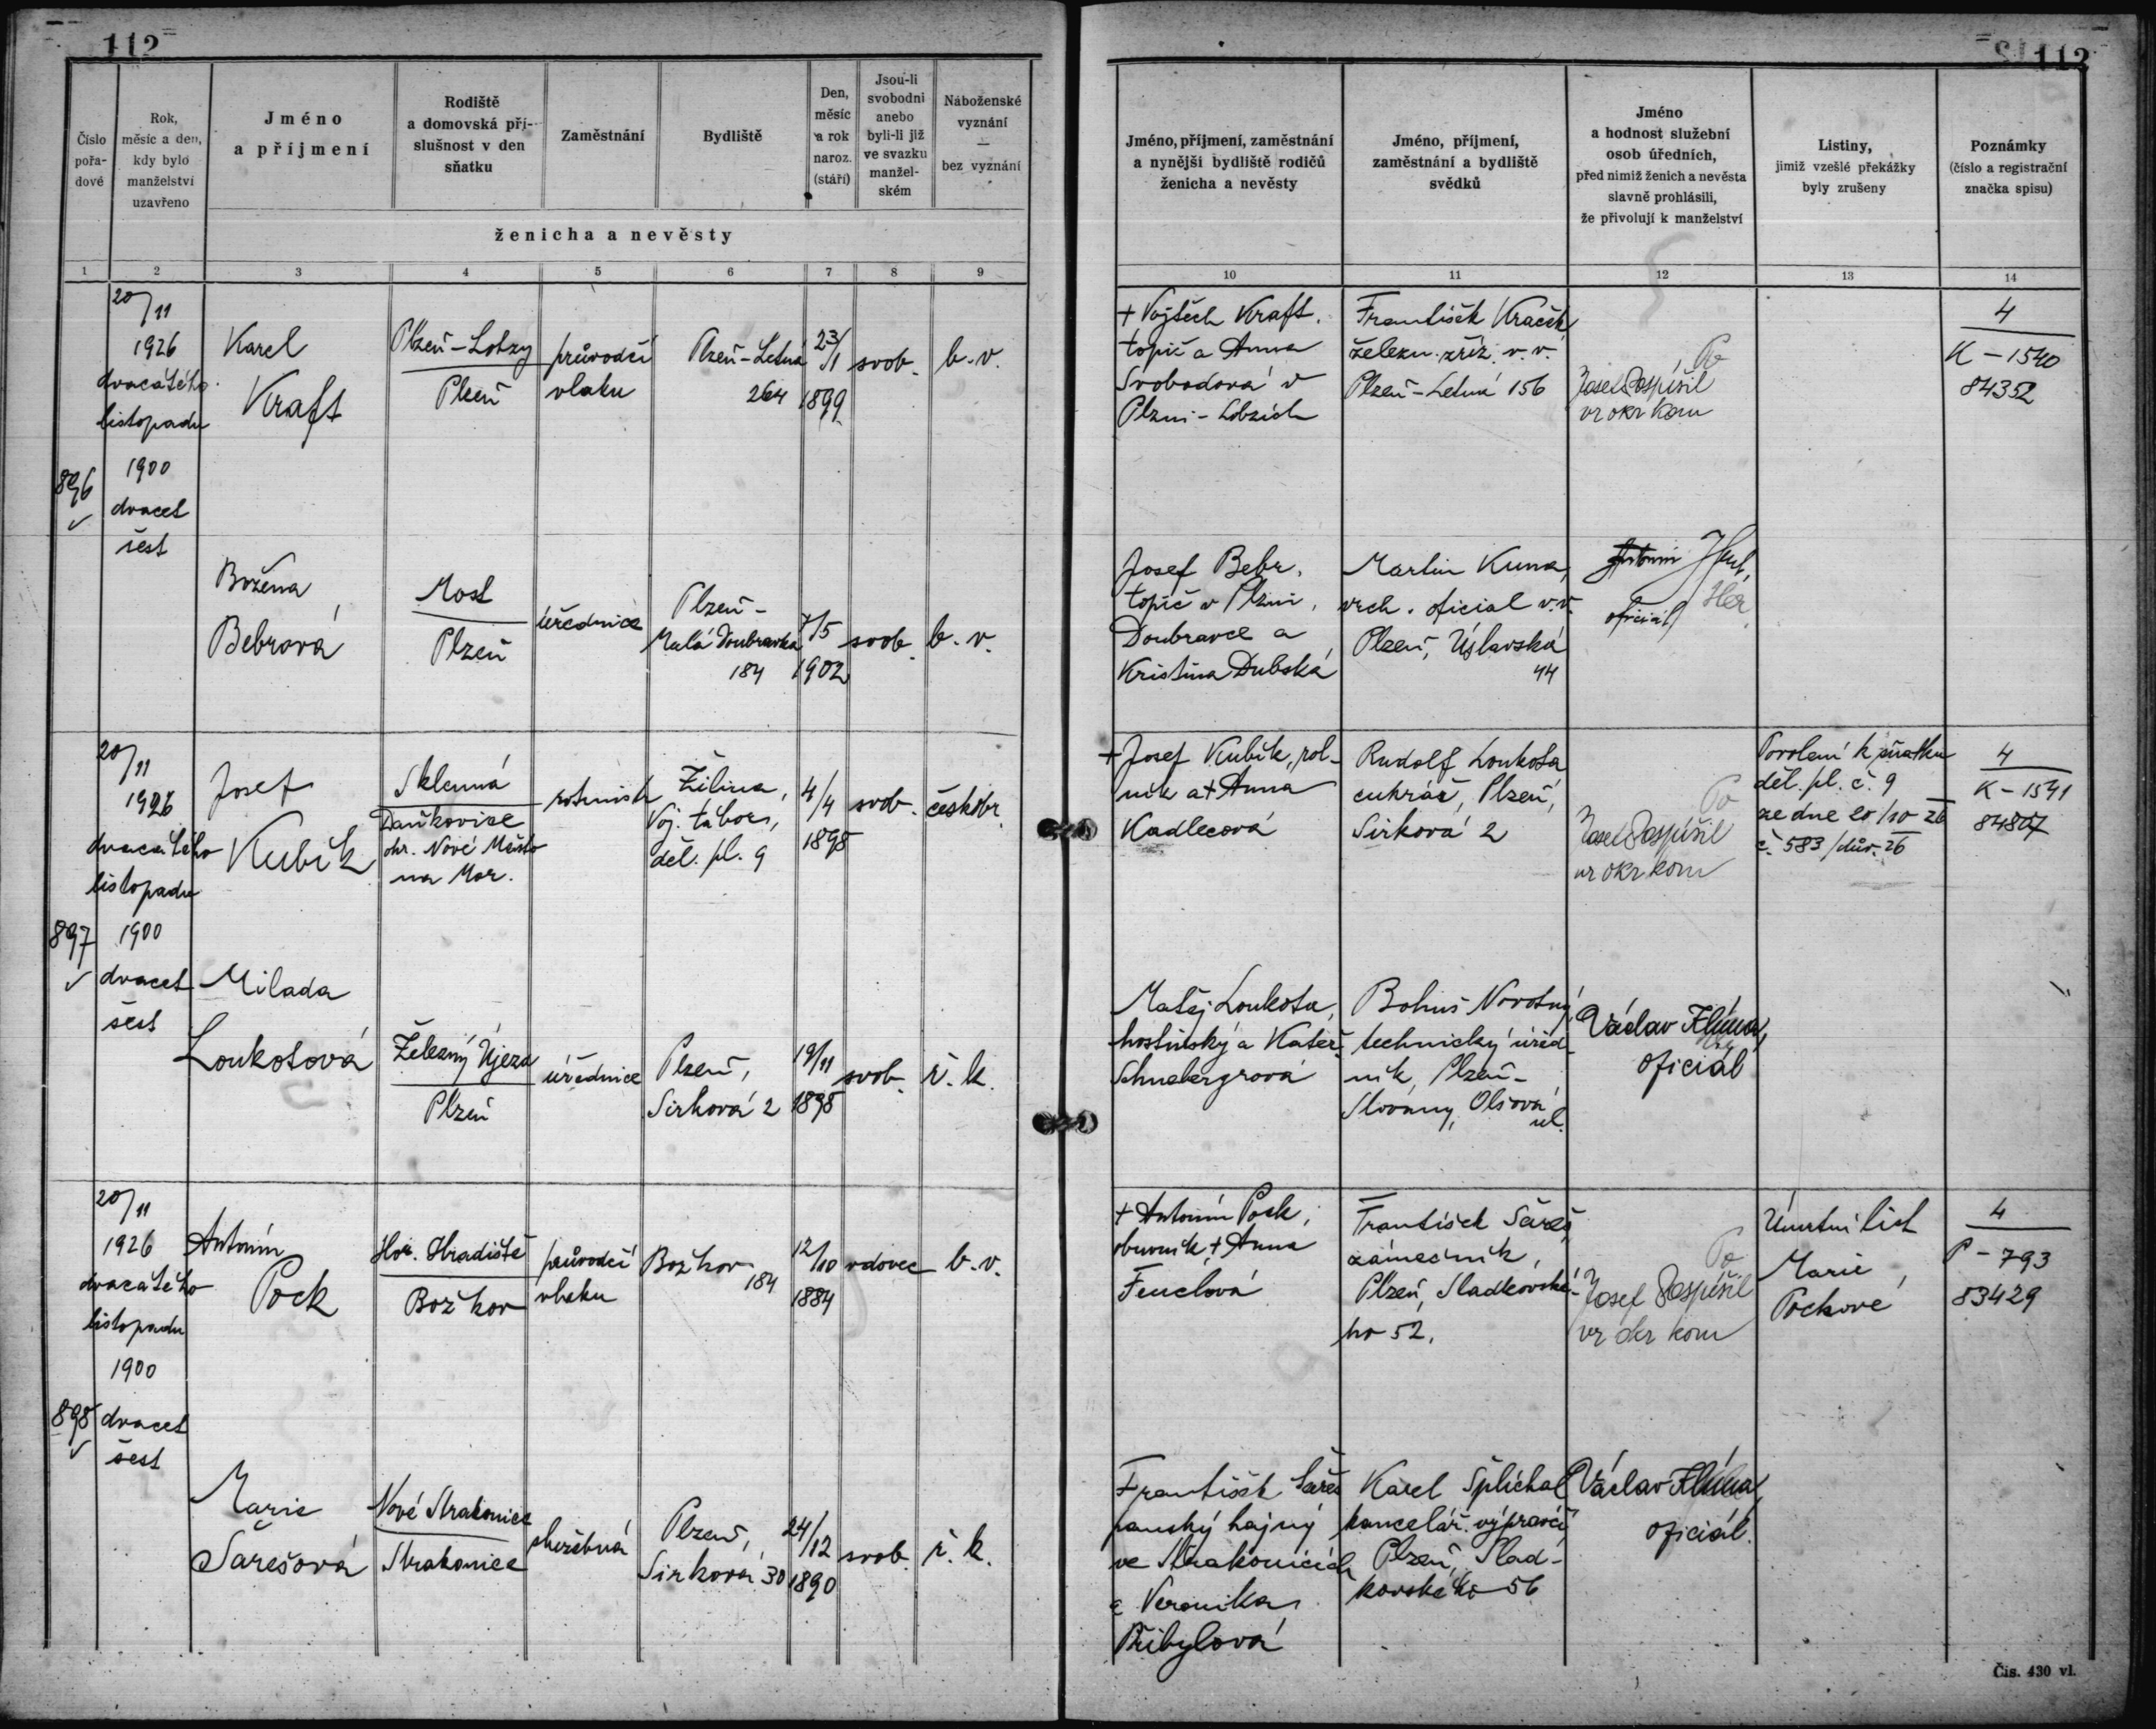 112
Číslo
pořa-
dové
Rok,
měsíc a den,
kdy bylo
manželství
uzavřeno
Jméno
a příjmení
Rodiště
a domovská pří-
slušnost v den
sňatku
Zaměstnání
Bydliště
Den,
měsíc
a rok
naroz.
(stáří)
Jsou-li
svobodni
anebo
byli-li již
ve svazku
manžel-
ském
Náboženské
vyznání
—
bez vyznání
ženicha a nevěsty
1 2 3 4 5 6 7 8 9
896
20/11
1926
dvacátého
listopadu
1900
dvacet
šest
Karel
Kraft
Plzeň-Lobzy
Plzeň
průvodčí
vlaku
Plzeň-Letná
264
23/1
1899
svob.
b. v.
Božena
Bebrová
Most
Plzeň
úřednice
Plzeň-
Malá Doubravka
184
7/5
1902
svob.
b. v.
897
20/11
1926
dvacátého
listopadu
1900
dvacet
šest
Josef
Kubík
Sklenná
Daňkovice
okr. Nové Město
na Mor.
rotmistr
Žilina,
Voj. tábor,
děl. pl. 9
4/4
1898
svob.
českobr.
Milada
Loukotová
Železný Újezd
Plzeň
úřednice
Plzeň,
Sirková 2
19/11
1898
svob.
ř. k.
898
20/11
1926
dvacátého
listopadu
1900
dvacet
šest
Antonín
Pock
Hor. Hradiště
Božkov
průvodčí
vlaku
Božkov
184
12/10
1884
vdovec
b. v.
Marie
Šarešová
Nové Strakonice
Strakonice
služebná
Plzeň,
Sirková 30
24/12
1890
svob.
ř. k.
113
Jméno, příjmení, zaměstnání
a nynější bydliště rodičů
ženicha a nevěsty
Jméno, příjmení,
zaměstnání a bydliště
svědků
Jméno
a hodnost služební
osob úředních,
před nimiž ženich a nevěsta
slavně prohlásili,
že přivolují k manželství
Listiny,
jimiž vzešlé překážky
byly zrušeny
Poznámky
(číslo a registrační
značka spisu)
10 11 12 13 14
+ Vojtěch Kraft,
topič a Anna
Svobodová v
Plzni-Lobzích
František Kraček
železn. zříz. v. v.
Plzeň-Letná 156
Po
Josef Pospíšil
vr okr kom
4
K-1540
84352
Josef Bebr,
topič v Plzni,
Doubravce a
Kristina Dubská
Martin Kuna,
vrch. oficial v. v.
Plzeň, Úslavská
44
Antonín
oficiál
+ Josef Kubík, rol-
ník a + Anna
Kadlecová
Rudolf Loukota
cukrář, Plzeň,
Sirková 2
Po
Josef Pospíšil
vr okr kom
Povolení k sňatku
děl. pl. č. 9
ze dne 20/10 26
č. 583/dův. 26
4
K-1541
84807
Matěj Loukota,
hostinský a Kateř.
Schnebergrová
Bohuš Novotný,
technický úřed-
ník, Plzeň-
Slovany, Olšová
ul.
Václav Klíma,
oficiál
+ Antonín Pock,
obuvník, + Anna
Feuclová
František Šareš,
zámečník,
Plzeň, Sladkovské-
ho 52.
Po
Josef Pospíšil
vr okr kom
Úmrtní list
Marie
Pockové
4
P-793
83429
František Šareš
panský hajný
ve Strakonicích
a Veronika
Přibylová
Karel Šplíchal
kancelář. výpravčí
Plzeň, Slad-
kovského 56
Václav Klíma,
oficiál.
Čís. 430 vl.